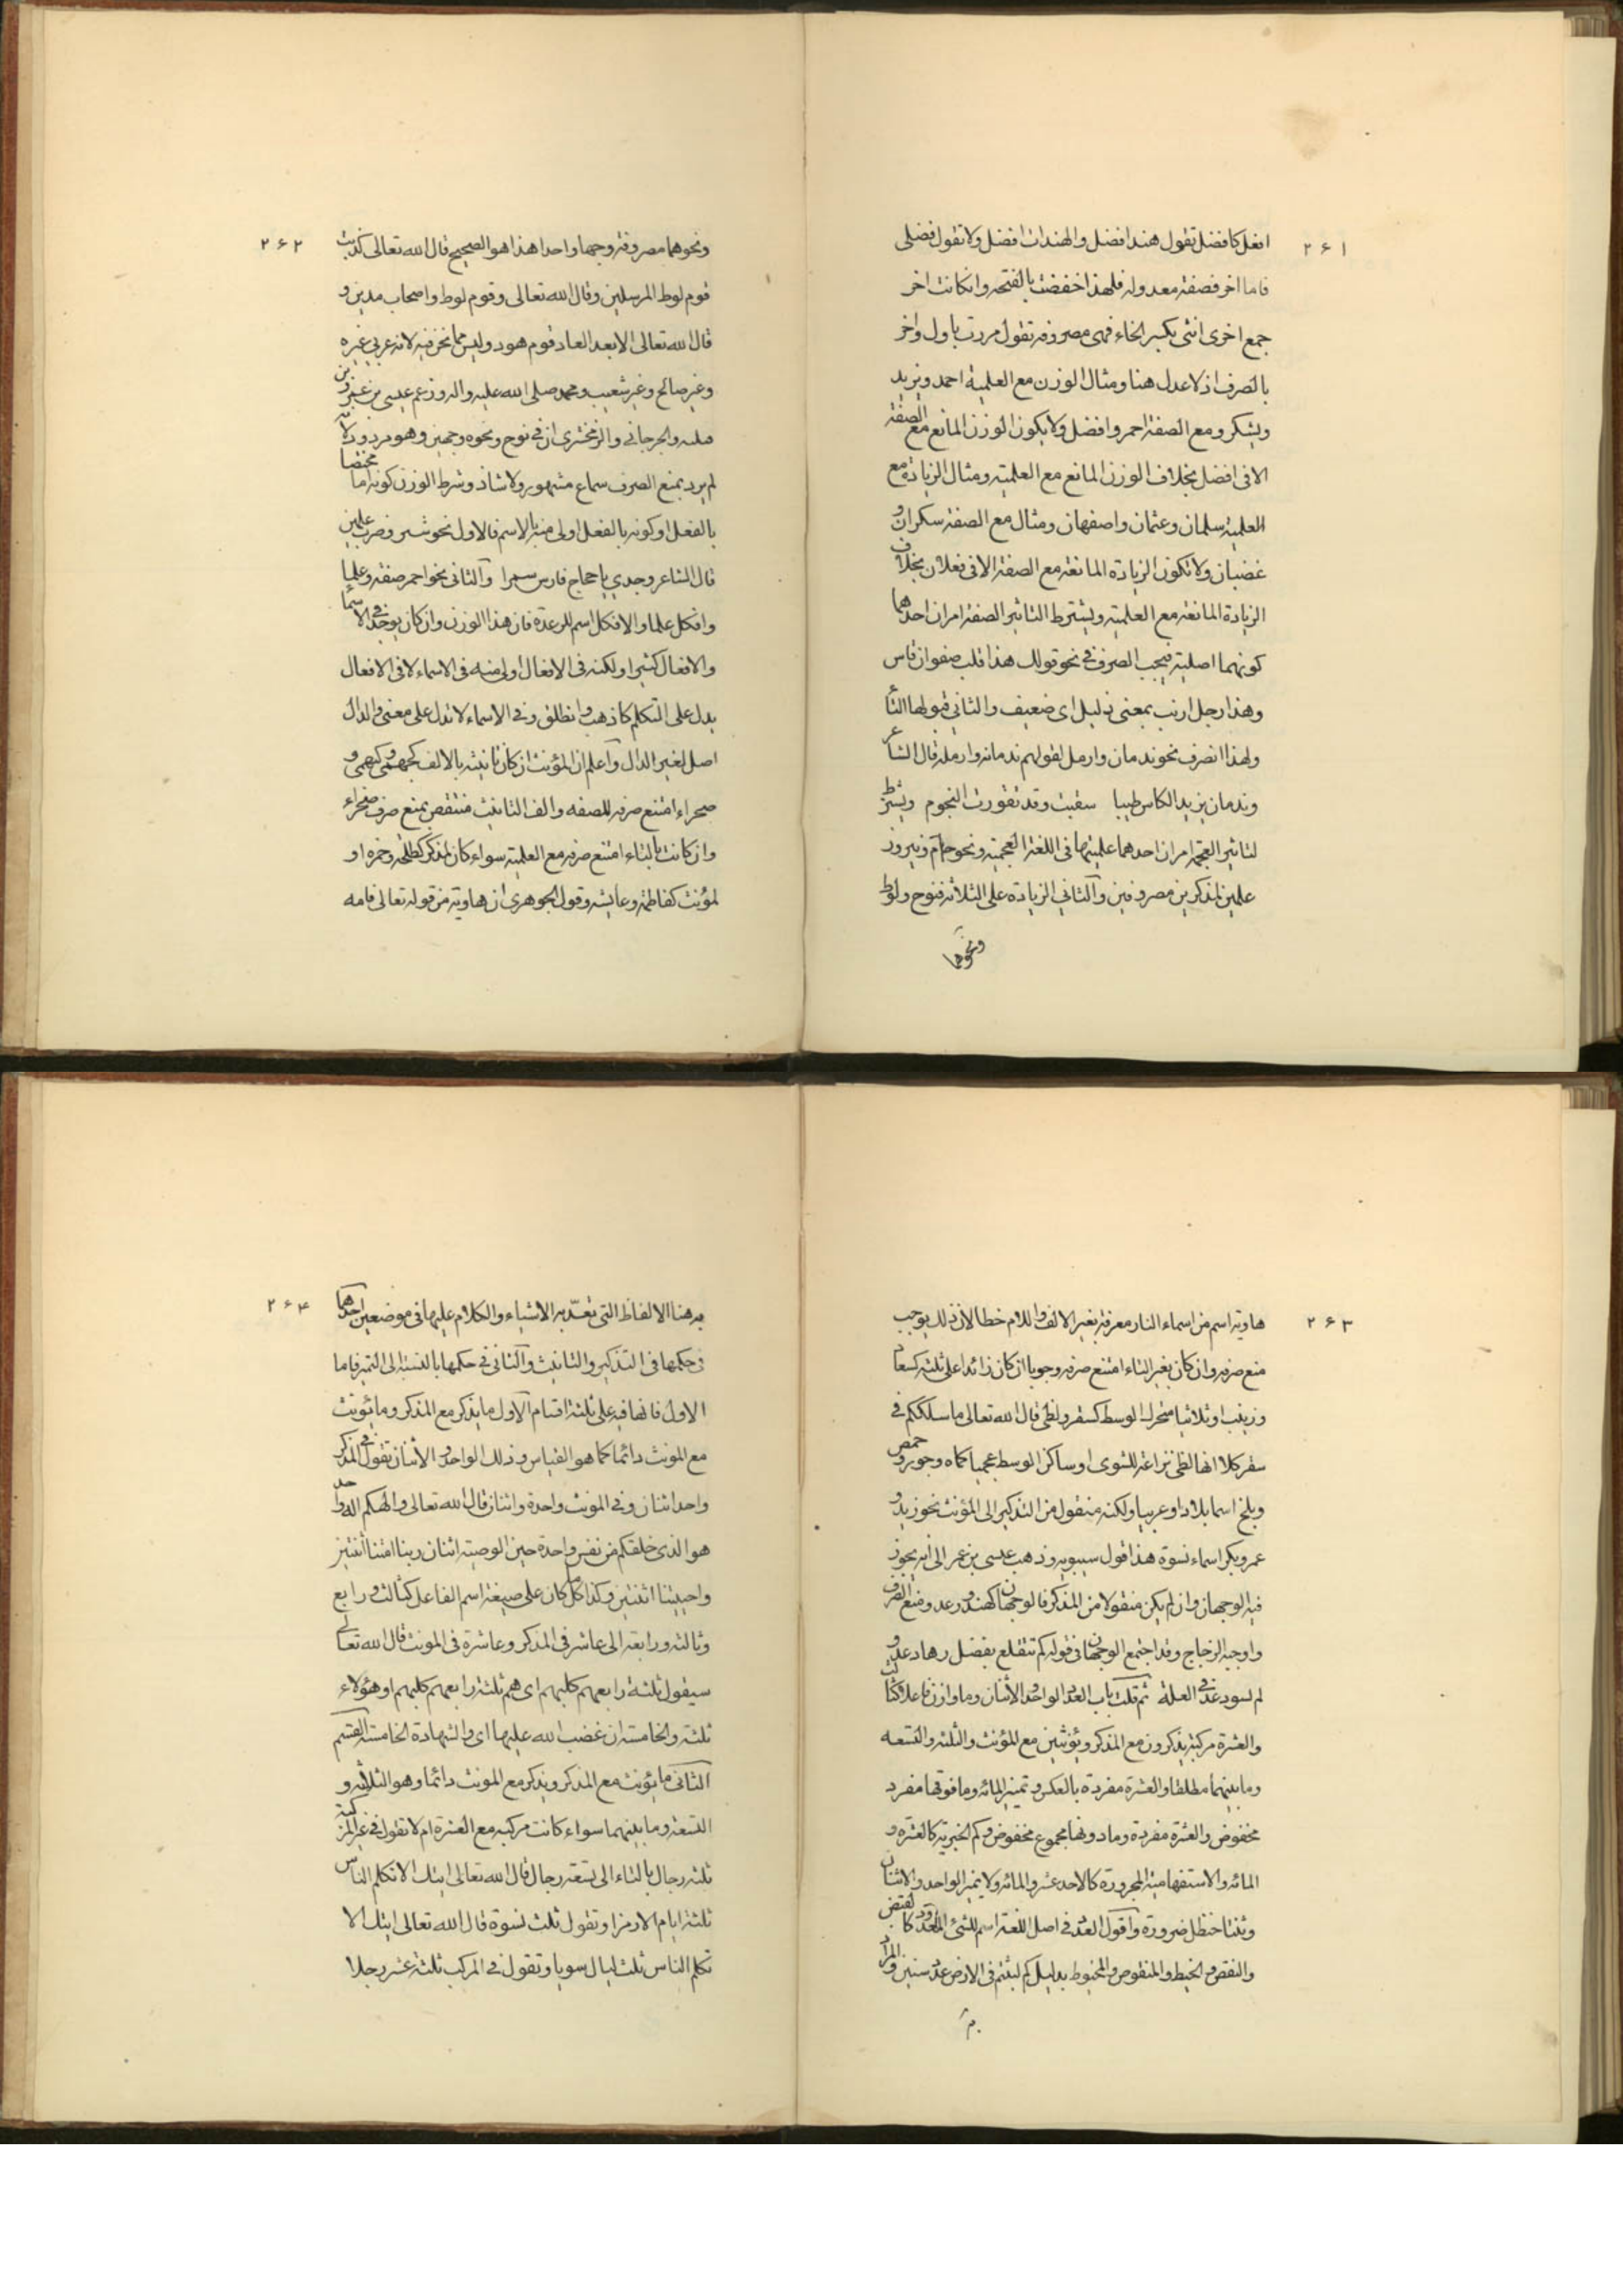 ٢۶١
افعل كافضل تقول هند افضل والهندات افضل ولا تقول فضلى
فاما اخر فصفة معدولة فلهذا خفضت بالفتحة وان كانت اخر
جمع اخرى انثى بكسر الخاء فهى مصروفة تقول مررت باول واخر
بالصرف اذ لا عدل هنا ومثال الوزن مع العلمية احمد ويزيد
ويشكر ومع الصفة احمر وافضل ولا يكون الوزن المانع مع الصفة
الا فى افضل بخلاف الوزن المانع مع العلمية ومثال الزيادة مع
العلمية سلمان وعثمان واصفهان ومثال مع الصفة سكران و
غضبان ولا تكون الزيادة المانعة مع الصفة الا فى فعلان بخلاف
الزيادة المانعة مع العلمية ويشترط التاثير الصفة امران احدهما
كونهما اصلية فيجب الصرف فى نحو قولك هذا قلب صفوان قاس
وهذا رجل ارنب بمعنى ذليل اى ضعيف والثانى قبولها التا
ولهذا انصرف نحو ندمان وارمل لقولهم ندمانة وارملة قال الشاعر
وندمان يزيد الكاس طيبا سقيت وقد تغورت النجوم ويشترط
لتاثير العجمة امران احدهما علميتها فى اللغة العجمية ونحو لجام وفيروز
علمين لمذكرين مصروفين والثانى الزيادة على الثلاثة فنوح ولوط
ونحوهما
٢۶٢
ونحوهما مصروفة وجها واحدا هذا هو الصحيح قال الله تعالى كذبت
قوم لوط المرسلين وقال الله تعالى وقوم لوط واصحاب مدين و
قال الله تعالى الا بعدا لعاد قوم هود وليس مما نحن فيه لانه عربى غيره
وغير صالح وغير شعيب ومحمد صلى الله عليه واله وزعم عيسى بن عمر وبن
والجرجانى والزمخشرى ان فى نوح ونحوه وجهين وهو مردود لانه
لم يرد بمنع الصرف سماع مشهور ولا شاذ وشرط الوزن كونه اما مختصا
بالفعل او كونه بالفعل اولى منه بالاسم فالاول نحو شمر وضرب علمين
قال الشاعر وجدى يا حجاج فارس شمرا والثانى نحو احمر صفة وعلما
وافكل علما والافكل اسم للرعدة فان هذا الوزن وان كان يوجد فى الاسما
والافعال كثيرا ولكنه فى الافعال اولى منه فى الاسماء لا فى الافعال
يدل على التكلم كاذهب وانطلق وفى الاسماء لا تدل على معنى والدال
اصل لغير الدال واعلم ان المؤنث ان كان تانيثه بالالف كبهمى و
صحراء امتنع صرفه للصفة والف التانيث منتقض بمنع صرف صحراء
وان كانت بالتاء امتنع صرفه مع العلمية سواء كان لمذكر كطلحة وحمزة او
لمؤنث كفاطمة وعايشة وقول الجوهرى ان هاوية من قوله تعالى فامه
٢۶٣
هاوية اسم من اسماء النار معرفة بغير الالف واللام خطا لان ذلك يوجب
منع صرفه وان كان بغير التاء امتنع صرفه وجوبا ان كان زائدا على ثلثة كسعاد
وزينب او ثلاثيا متحرك الوسط كسقر ولظى قال الله تعالى ما سلككم فى
سقر كلا انها لظى نزاعة للشوى او ساكن الوسط عجميا كماه وجور وحمص
وبلخ اسما بلاد او عربيا ولكنه منقول من التذكير الى المؤنث نحو زيد و
عمرو بكر اسماء نسوة هذا قول سيبويه وذهب عيسى بن عمر الى انه يجوز
فيه الوجهان وان لم يكن منقولا من المذكر فالوجهان كهند ودعد ومنع الصرف
واوجبه الزجاج وقد اجتمع الوجهان فى قوله لم تتلفع بفضل رهادعد و
لم تسق دعد فى العلة ثم قلت باب العدد الواحد والاثنان وما وازن فاعلا كثالث
والعشرة مركبة يذكرون مع المذكر ويؤنثين مع المؤنث والثلثة والتسعة
وما بينهما مطلقا والعشرة مفردة بالعكس وتميز المائة وما فوقها مفرد
مخفوض والعشرة مفردة وما دونها مجموع مخفوض وكم الخبرية كالعشرة و
المائة والاستفهامية المجرورة كالاحد عشر والمائة ولا يميز الواحد والاثنان
وثنتا حنظل ضرورة واقول العدد فى اصل اللغة اسم للشئ المعدود كالقبض
والنقض والخبط والمنقوض والمخبوط بدليل كم لبثتم فى الارض عدد سنين والمراد
٢۶۴
به هنا الالفاظ التى تعدّ به الاشياء والكلام عليها فى موضعين احدهما
فى حكمها فى التذكير والتانيث والثانى فى حكمها بالنسبة الى التميز فاما
الاول فانها فيه على ثلثة اقسام الاول ما يذكر مع المذكر وما يؤنث
مع المونث دائما كما هو القياس وذلك الواحد والاثنان تقول فى المذكر
واحد اثنان وفى المونث واحدة واثنان قال الله تعالى والهكم اله واحد
هو الذى خلقكم من نفس واحدة حين الوصية اثنان ربنا امتنا اثنتين
واحييتنا اثنتين وكذا كل ما كان على صيغة اسم الفاعل كثالث ورابع
وثالثة ورابعة الى عاشر فى المذكر وعاشرة فى المونث قال الله تعالى
سيقول ثلثة رابعهم كلبهم اى هم ثلثة رابعهم كلبهم او هؤلاء
ثلثة والخامسة ان غضب الله عليها اى والشهادة الخامسة القسم
الثانى ما يؤنث مع المذكر ويذكر مع المونث دائما وهو الثلاثة و
التسعة وما بينهما سواء كانت مركبة مع العشرة ام لا تقول فى غير المركبة
ثلثة رجال بالتاء الى تسعة رجال قال الله تعالى ايتك الا تكلم الناس
ثلثة ايام الا رمزا وتقول ثلث نسوة قال الله تعالى ايتك الا
تكلم الناس ثلث ليال سويا وتقول فى المركب ثلثة عشر رجلا